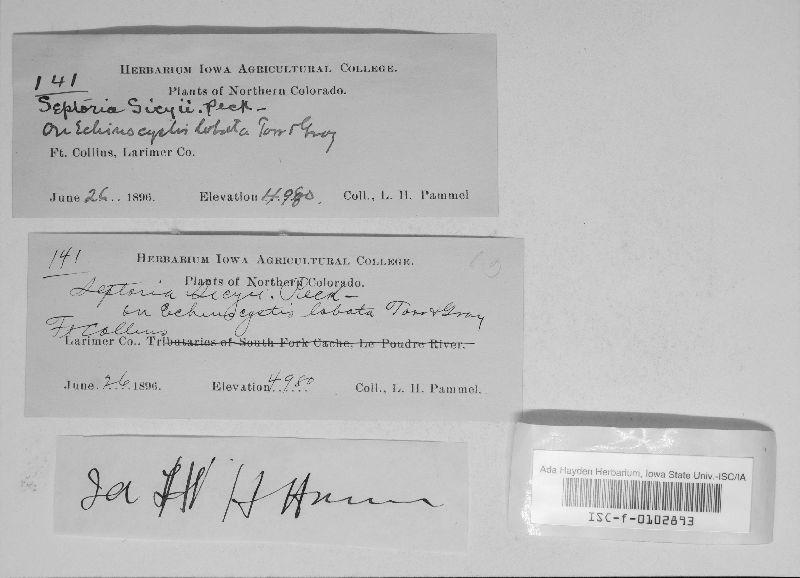 HERBARIUM IOWA AGRICULTURAL COLLEGE.
141
Plants of Northern Colorado.
Septoria Sicyii. Peck -
On Echinocystis lobata Torr & Gray
Ft. Collins, Larimer Co.
June 26.. 1896. Elevation 4980. Coll., L. H. Pammel
141
HERBARIUM IOWA AGRICULTURAL COLLEGE.
Plants of Northern Colorado.
Septoria Sicyii. Peck -
on Echinocystis lobata Torr & Gray
Ft Collins
Larimer Co., Tributaries of South Fork Cache, Le Poudre River.
June 26 1896. Elevation 4980 Coll., L. H. Pammel.
Ada Hayden Herbarium, Iowa State Univ.-ISC/IA
ISC-f-0102893